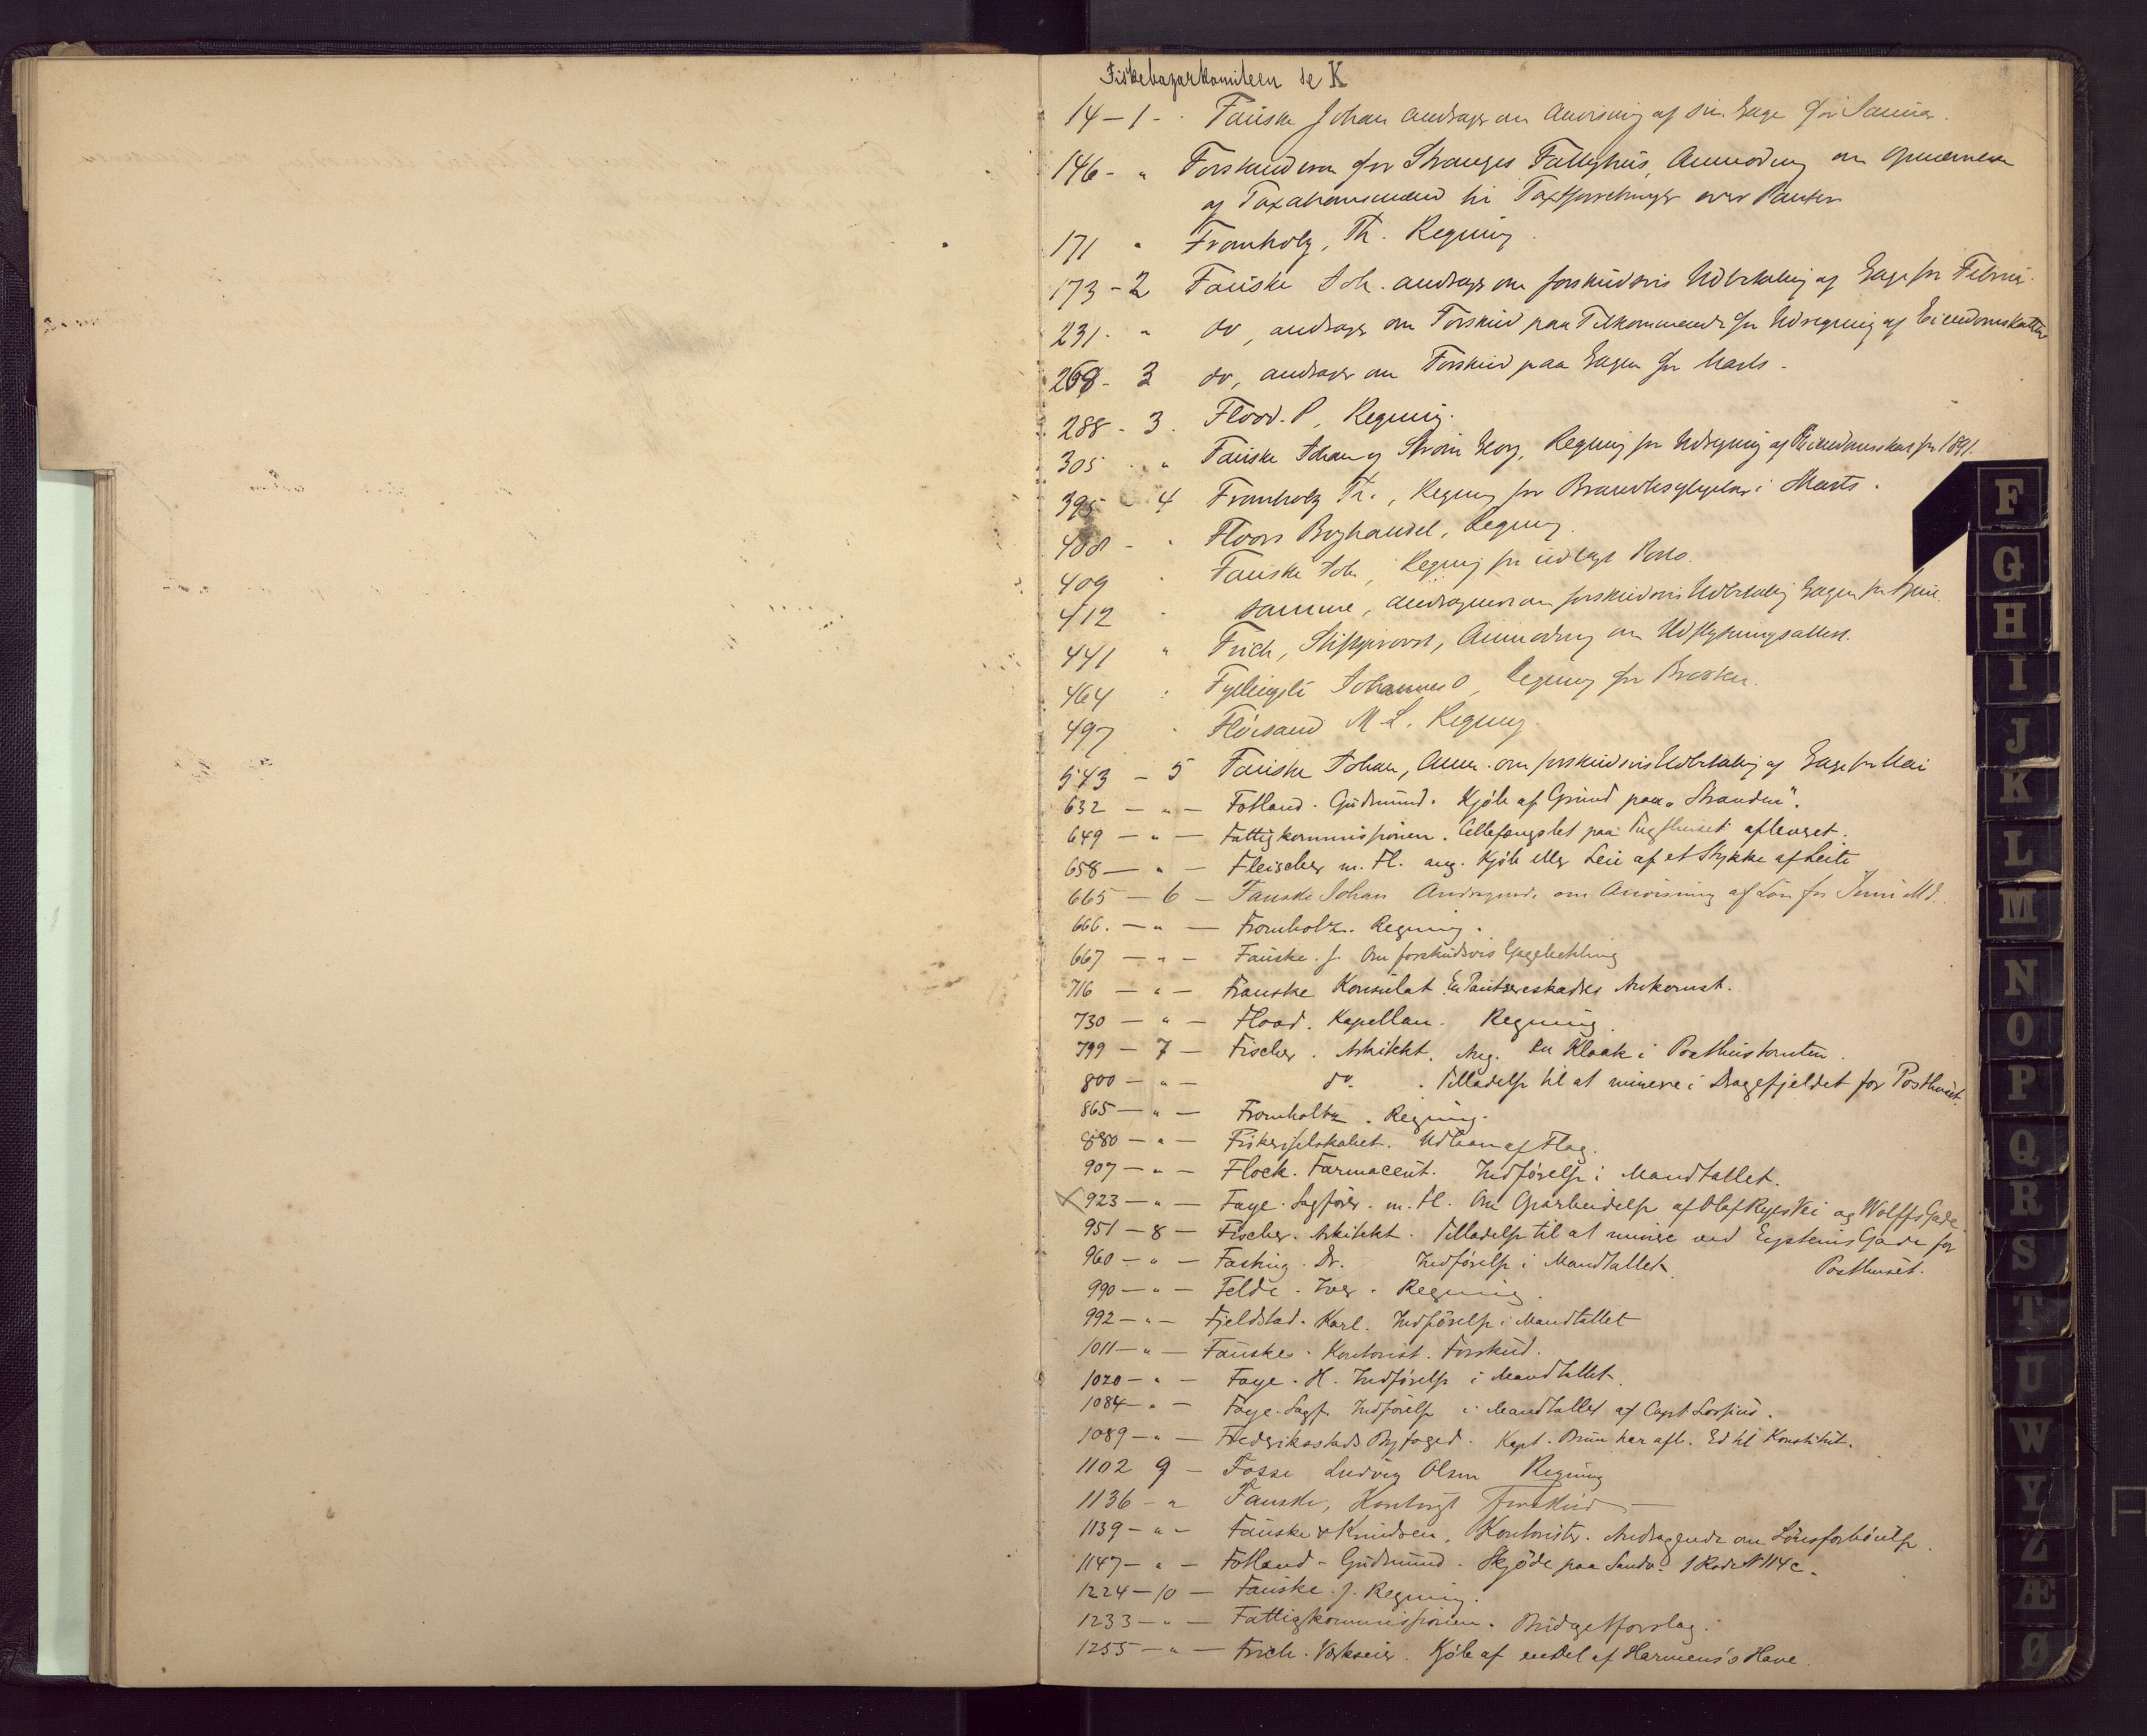 Fiskebazarkomiteen se K
14 - 1 - Fauske Johan andrager om Anvisning af sin Gage for Januar.
146 - " Forstanderen for Stranges Fattighus, Anmodning om Opnævnelse
af Taxationsmænd til Taxtforretninger over Panter
171 " Fromholz, Th. Regning.
173 - 2 Fauske Joh. andrager om forskudsvis Udbetaling af Gage for Februar.
231 - " do, andrager om Forskud paa Tilkommende for Udregning af Eiendomskatten
268 - 3 do, andrager om Forskud paa Gagen for Marts.
288 - 3. Flood. P, Regning.
305 - " Fauske Johan og Strøm Georg, Regning for Udregning af Eiendomsskat for 1891.
395 - 4 Fromholz Th., Regning for i Marts.
408 - " Floors Boghandel, Regning.
409 " Fauske Joh, Regning for udlagt Porto.
412 " samme, andragende om forskudsvis Udbetaling Gagen for April.
441 " Frich, Stiftsprovst, Anmodning om Udflytningsattest.
464 " Johannes O, Regning for Brosten.
497 " Flörsand M. L. Regning.
543 - 5 Fauske Johan, Anm. om forskudsvis Udbetaling af Gage for Mai
632 - " - Fotland. Gudmund. Kjöb af Grund paa "Stranden".
649 - " - Fattigkommissionen. Cellefængslet paa Tugthuset afleveret.
658 - " - Fleischer m. Fl. ang. Kjöb eller Leie af et Stykke af Leite
665 - 6 - Fauske Johan Andragende om Anvisning af Lön for Juni Md.
666. - " - Fromholtz. Regning.
667 - " - Fauske. J. Om forskudsvis Gagebetaling
716 - " - Franske Konsulat. En Pantsereskadres Ankomst.
730 - " - Flood. Kapellan. Regning.
799 - 7 - Fischer. Arkitekt. Ang. en Kloak i Posthustomten.
800 - " - do. . Tilladelse til at minere i Dragefjeldet for Posthuset.
865 - " - Fromholtz. Regning.
880 - " - Fiskeriselskabet. Udlaan af Flag.
907 - " - Flock. Farmaceut. Indförelse i Mandtallet.
923 - " - Faye. Sagförer. m. Fl. Om Oparbeidelse af Olaf Ryes Vei og Wolffs Gade.
951 - 8 - Fischer. Arkitekt. Tilladelse til at minere ved Eysteins Gade for
Posthuset.
960 - " - Fasting. Dr. Indförelse i Mandtallet.
990 - " - Felde. Iver. Regning.
992 - " - Fjeldstad. Karl. Indförelse i Mandtallet
1011 - " - Fauske. Kontorist. Forskud.
1020 - " - Faye. H. Indförelse i Mandtallet.
1084 - " - Faye. Sagf. Indförelse i Mandtallet af Capt
1089 - " - Fredriksstads Byfoged. Kapt. Bruu har afl. Ed til Konstitut.
1102 9 - Fosse Ludvig Olsen Regning
1136 - " Fauske, Kontorist Forskud
1139 - " - Fauske & Knudsen, Kontorister. Andragende om Lönsforhöielse.
1147 - " - Fotland - Gudmund. Skjöde paa Sandv. 1 Rode N 114 c.
1224 - 10 - Fauske. J. Regning.
1233 - " - Fattigkommissionen. Budgetforslag.
1255 - " - Frich. Værkseier. Kjöb af endel af Harmens's Have.
F
G
H
I
J
K
L
M
N
O
P
Q
R
S
T
U
W
Y
Z
Æ
Ø